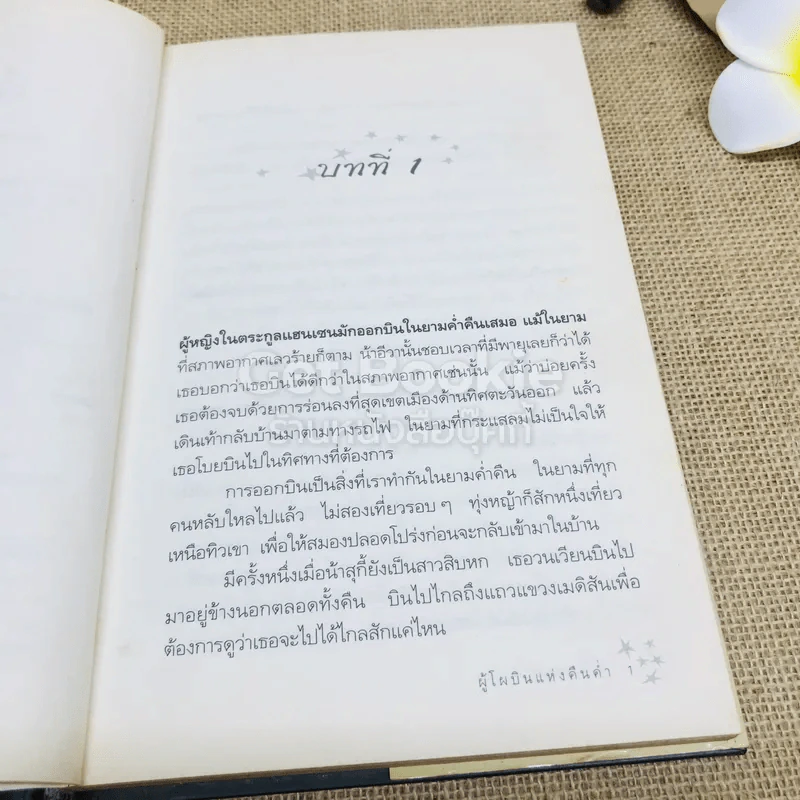 บทที่ 1
ผู้หญิงในตระกูลแฮนเซนมักออกบินในยามค่ำคืนเสมอ แม้ในยาม
ที่สภาพอากาศเลวร้ายก็ตาม น้าอีวานั้นชอบเวลาที่มีพายุเลยก็ว่าได้
เธอบอกว่าเธอบินได้ดีกว่าในสภาพอากาศเช่นนั้น แม้ว่าบ่อยครั้ง
เธอต้องจบด้วยการร่อนลงที่สุดเขตเมืองด้านทิศตะวันออก แล้ว
เดินเท้ากลับบ้านมาตามทางรถไฟ ในยามที่กระแสลมไม่เป็นใจให้
เธอโบยบินไปในทิศทางที่ต้องการ
การออกบินเป็นสิ่งที่เราทำกันในยามค่ำคืน ในยามที่ทุก
คนหลับใหลไปแล้ว ไม่สองเที่ยวรอบๆ ทุ่งหญ้าก็สักหนึ่งเที่ยว
เหนือทิวเขา เพื่อให้สมองปลอดโปร่งก่อนจะกลับเข้ามาในบ้าน
มีครั้งหนึ่งเมื่อน้าสุกี้ยังเป็นสาวสิบหก เธอวนเวียนบินไป
มาอยู่ข้างนอกตลอดทั้งคืน บินไปไกลถึงแถวแขวงเมดิสันเพื่อ
ต้องการดูว่าเธอจะไปได้ไกลสักแค่ไหน
ผู้โผบินแห่งคืนค่ำ 1
ร้านหนังสือบุ๊คกี้